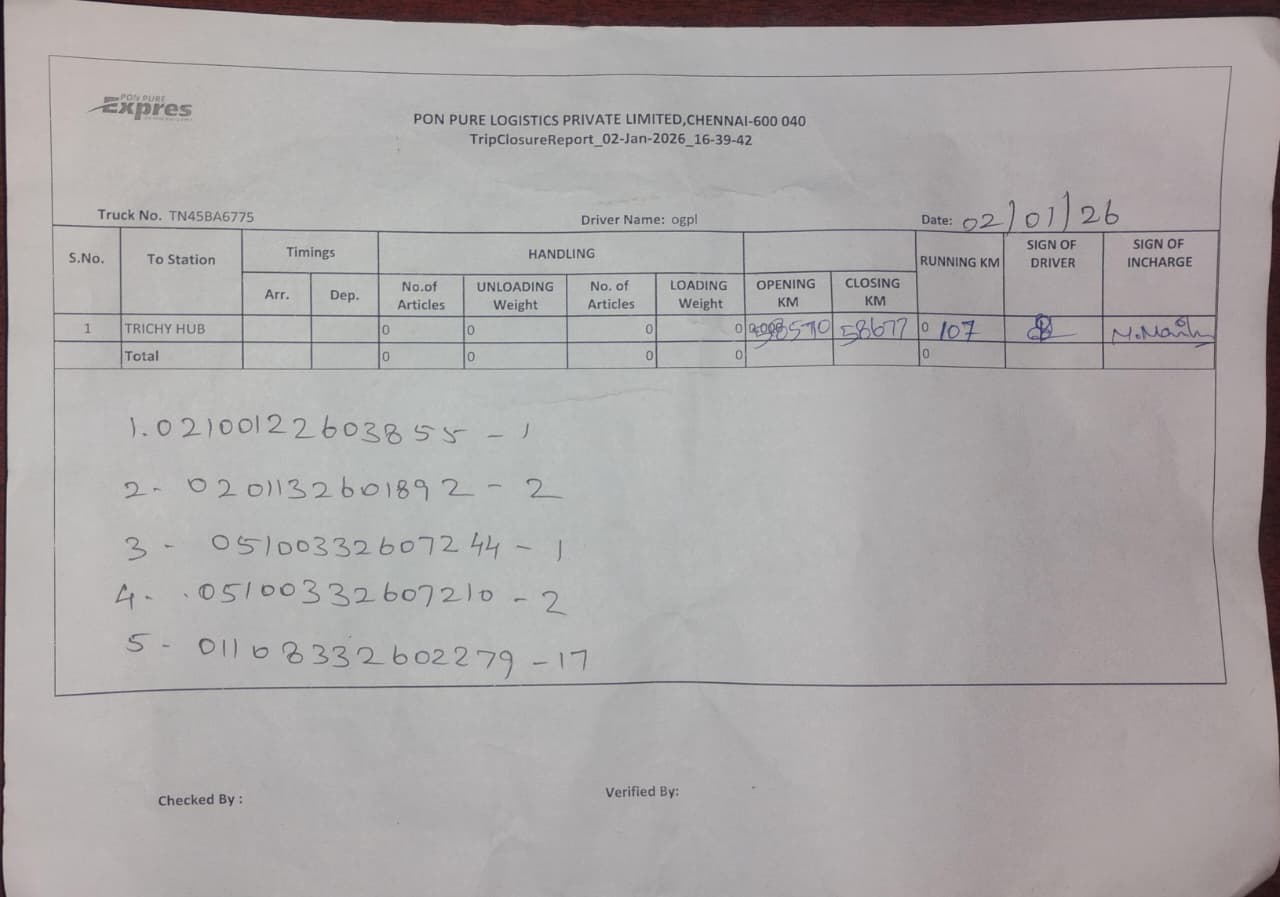 PON PURE
Expres
PON PURE LOGISTICS PRIVATE LIMITED,CHENNAI-600 040
TripClosureReport_02-Jan-2026_16-39-42
Truck No. TN45BA6775 Driver Name: ogpl Date: 02/01/26
S.No. To Station Timings HANDLING RUNNING KM SIGN OF DRIVER SIGN OF INCHARGE
Arr. Dep. No.of Articles UNLOADING Weight No. of Articles LOADING Weight OPENING KM CLOSING KM
1 TRICHY HUB 0 0 0 0 58570 58677 0 107
Total 0 0 0 0 0
1. 02100122603855 - 1
2- 0201132601892 - 2
3 - 05100332607244 - 1
4- .05100332607210 - 2
5 - 01108332602279 - 17
Checked By : Verified By: